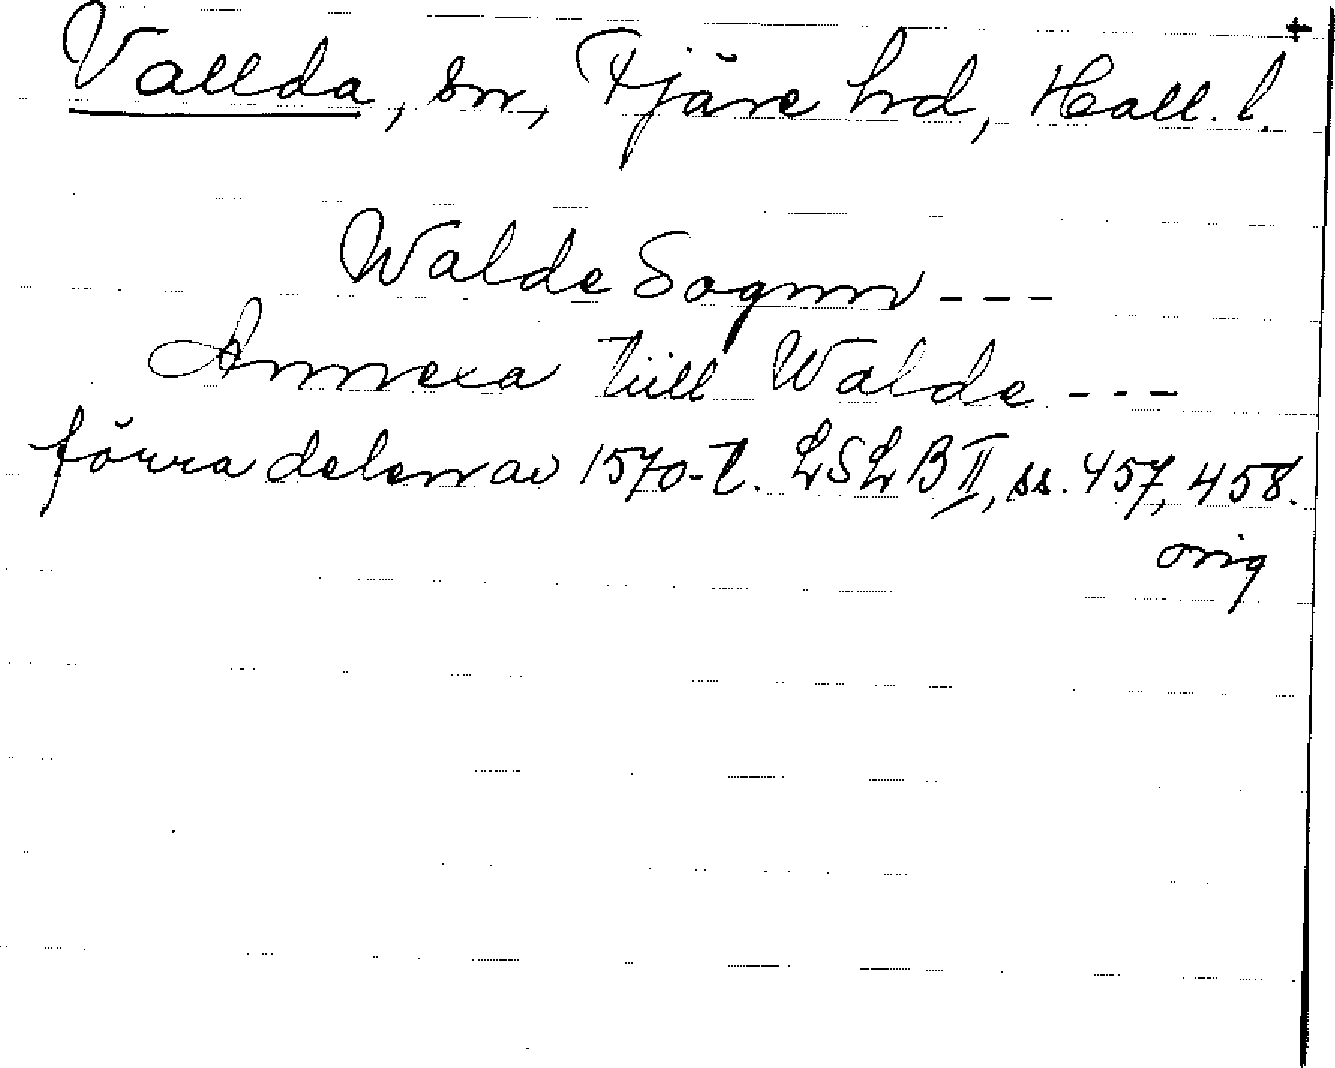 Vallda, sn, Fjäre hd, Hall. l.
Walde Sognn ---
Annexa tiill Walde ---
förra delen av 1570-t. LSLB II, ss. 457, 458.
orig